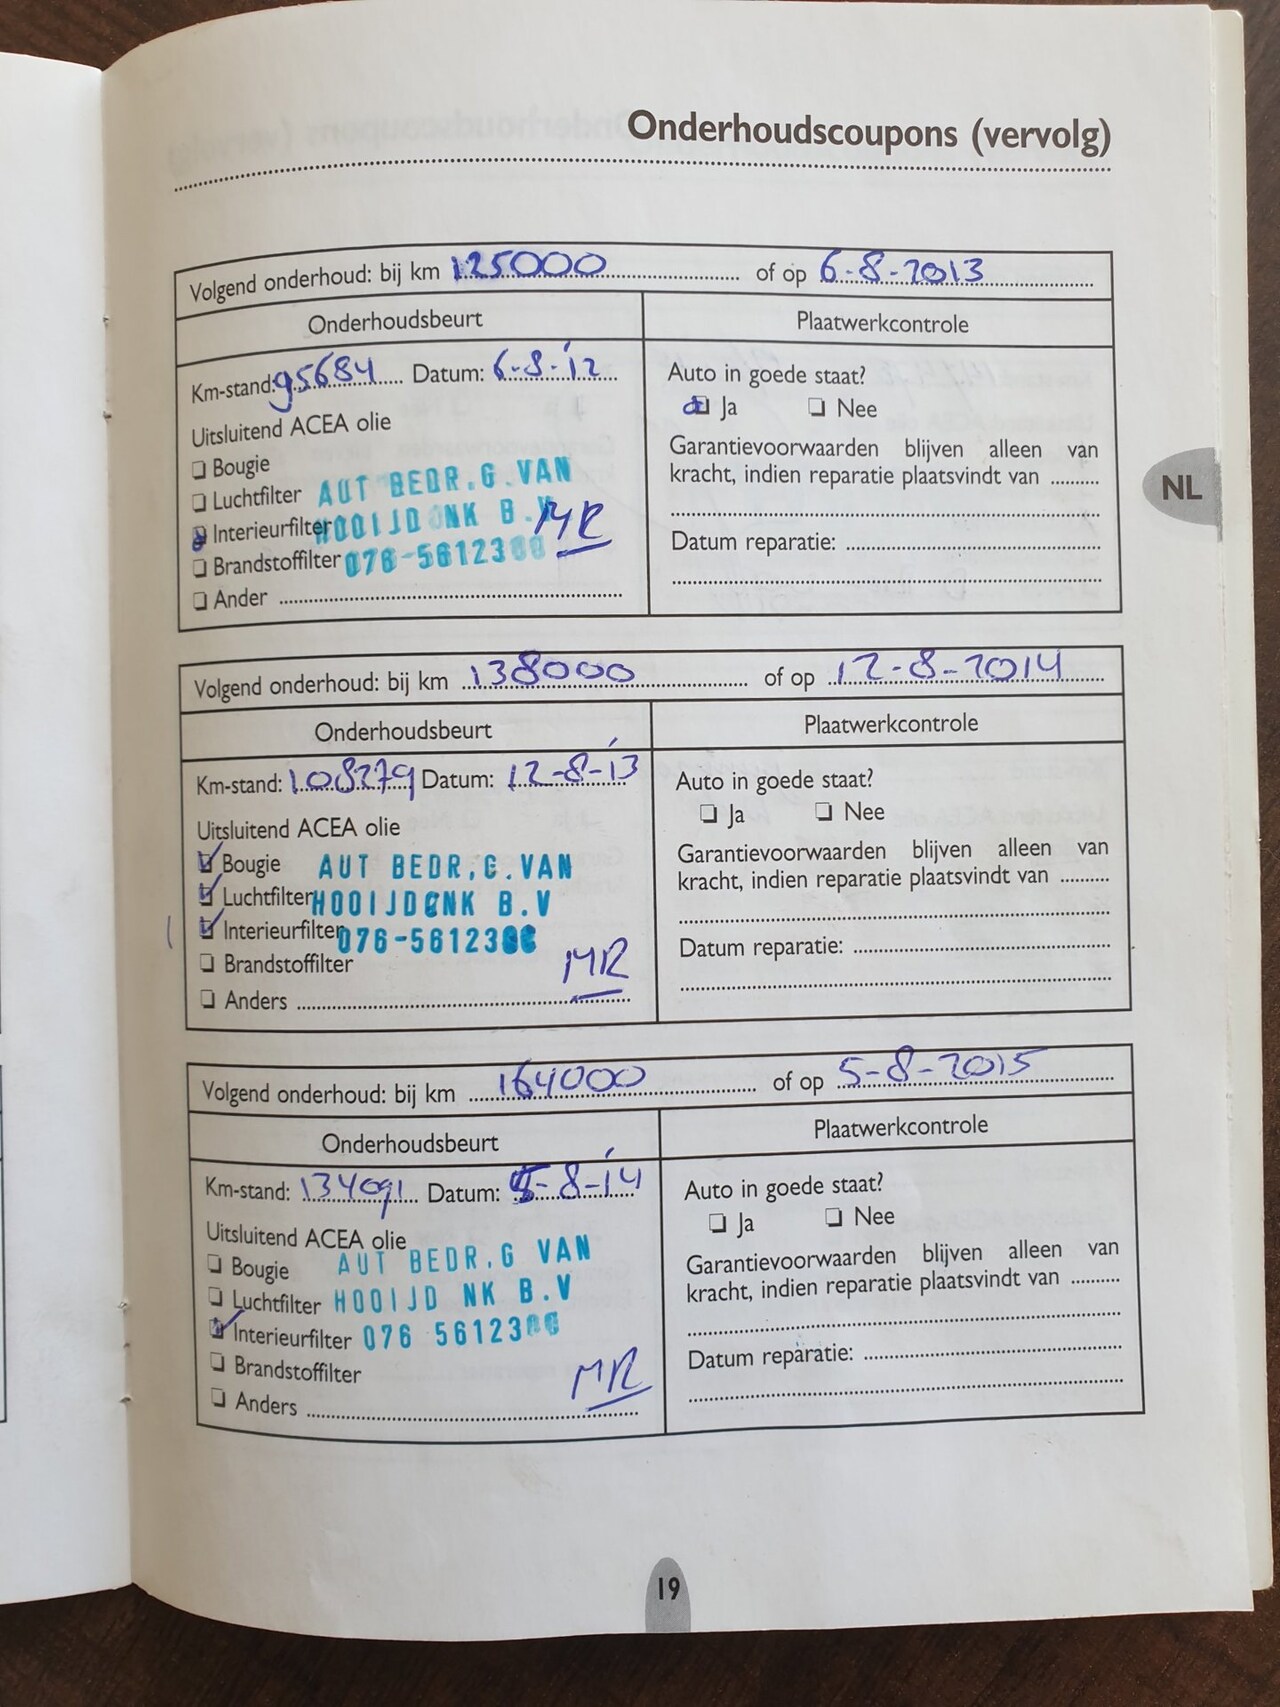 Onderhoudscoupons (vervolg)
Volgend onderhoud: bij km 125000 of op 6-8-2013
Onderhoudsbeurt Plaatwerkcontrole
Km-stand: 95684 Datum: 6-8-'12 Auto in goede staat?
☑ Ja ❏ Nee
Uitsluitend ACEA olie
❏ Bougie Garantievoorwaarden blijven alleen van
❏ Luchtfilter AUT BEDR.G.VAN kracht, indien reparatie plaatsvindt van ..........
☑ Interieurfilter HOOIJD NK B.V MR
❏ Brandstoffilter 076-5612300 Datum reparatie:
❏ Ander
NL
Volgend onderhoud: bij km 138000 of op 12-8-2014
Onderhoudsbeurt Plaatwerkcontrole
Km-stand: 108279 Datum: 12-8-'13 Auto in goede staat?
❏ Ja ❏ Nee
Uitsluitend ACEA olie
☑ Bougie AUT BEDR,G.VAN Garantievoorwaarden blijven alleen van
☑ Luchtfilter HOOIJDONK B.V kracht, indien reparatie plaatsvindt van ..........
☑ Interieurfilter 076-5612300
❏ Brandstoffilter MR Datum reparatie:
❏ Anders
Volgend onderhoud: bij km 164000 of op 5-8-2015
Onderhoudsbeurt Plaatwerkcontrole
Km-stand: 134091 Datum: 5-8-'14 Auto in goede staat?
❏ Ja ❏ Nee
Uitsluitend ACEA olie
❏ Bougie AUT BEDR.G VAN Garantievoorwaarden blijven alleen van
❏ Luchtfilter HOOIJD NK B.V kracht, indien reparatie plaatsvindt van ..........
☑ Interieurfilter 076 5612300
❏ Brandstoffilter MR Datum reparatie:
❏ Anders
19